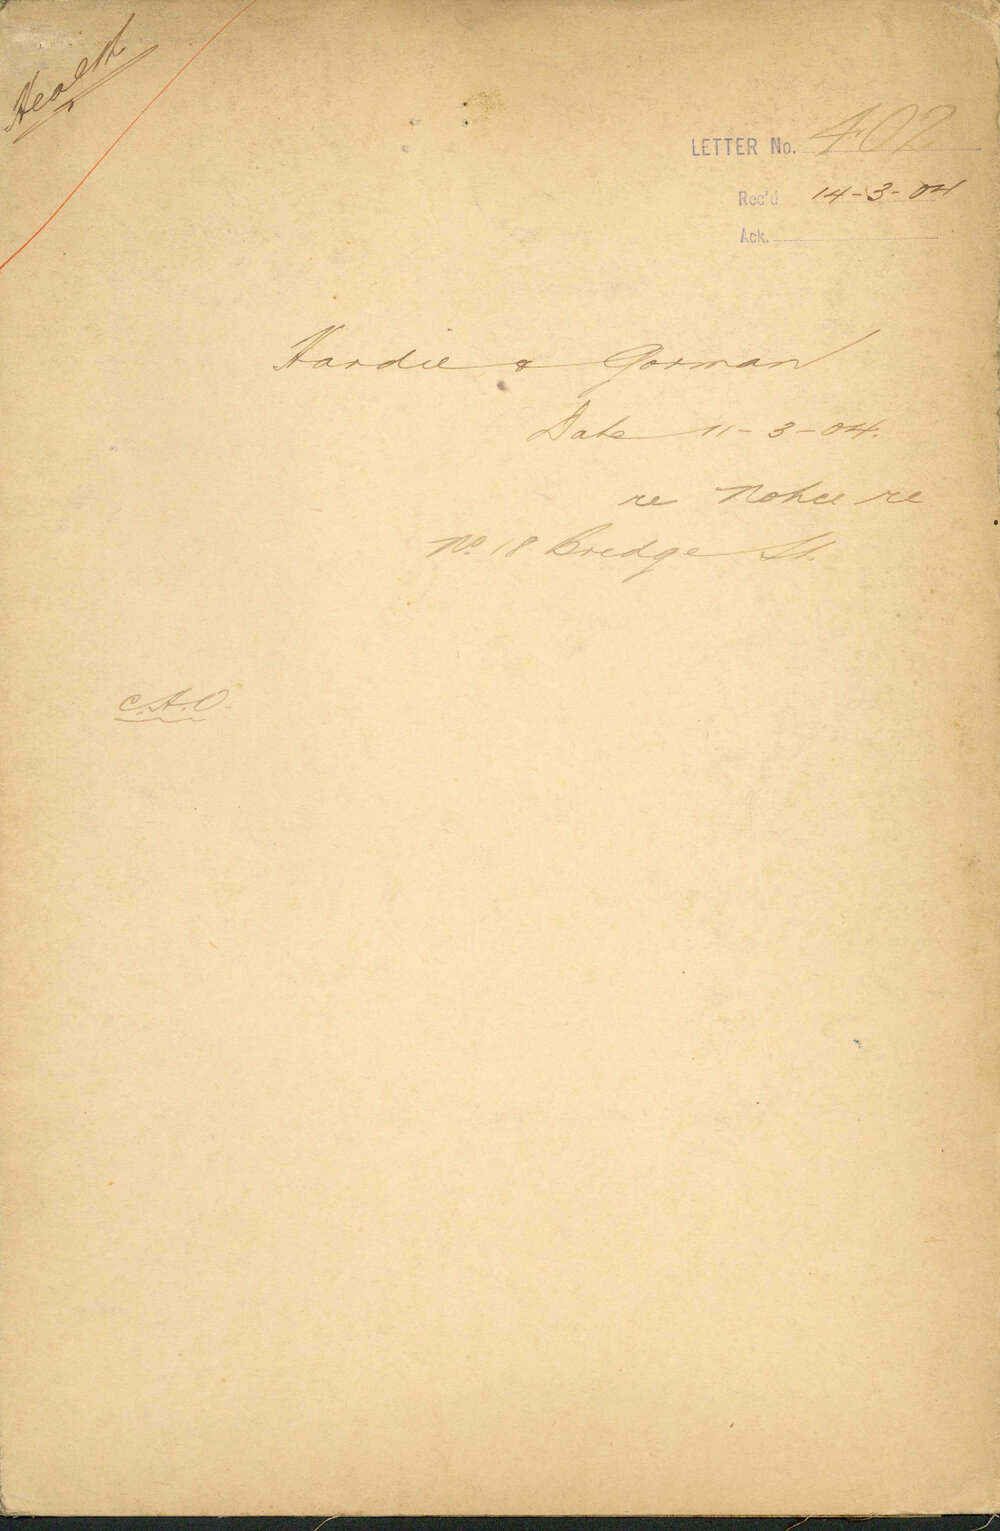 Health
LETTER No. 402
Rec'd 14-3-04
Ack.
Hardie & Gorman
Date 11-3-04.
re Notice re
No. 18 Bridge St.
C.A.O.